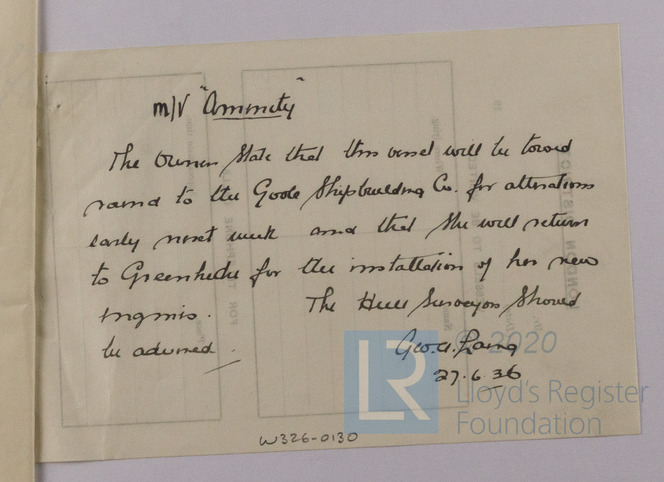 m/v "Amenity"
The Owners state that this vessel will be towed
round to the Goole Shipbuilding Co. for alterations
early next week and that she will return
to Greenhithe for the installation of her new
engines. The Hull Surveyors should
be advised.
Geo. A. Laing
27.6.36
W326-0130
© 2020
LR
Lloyd's Register
Foundation